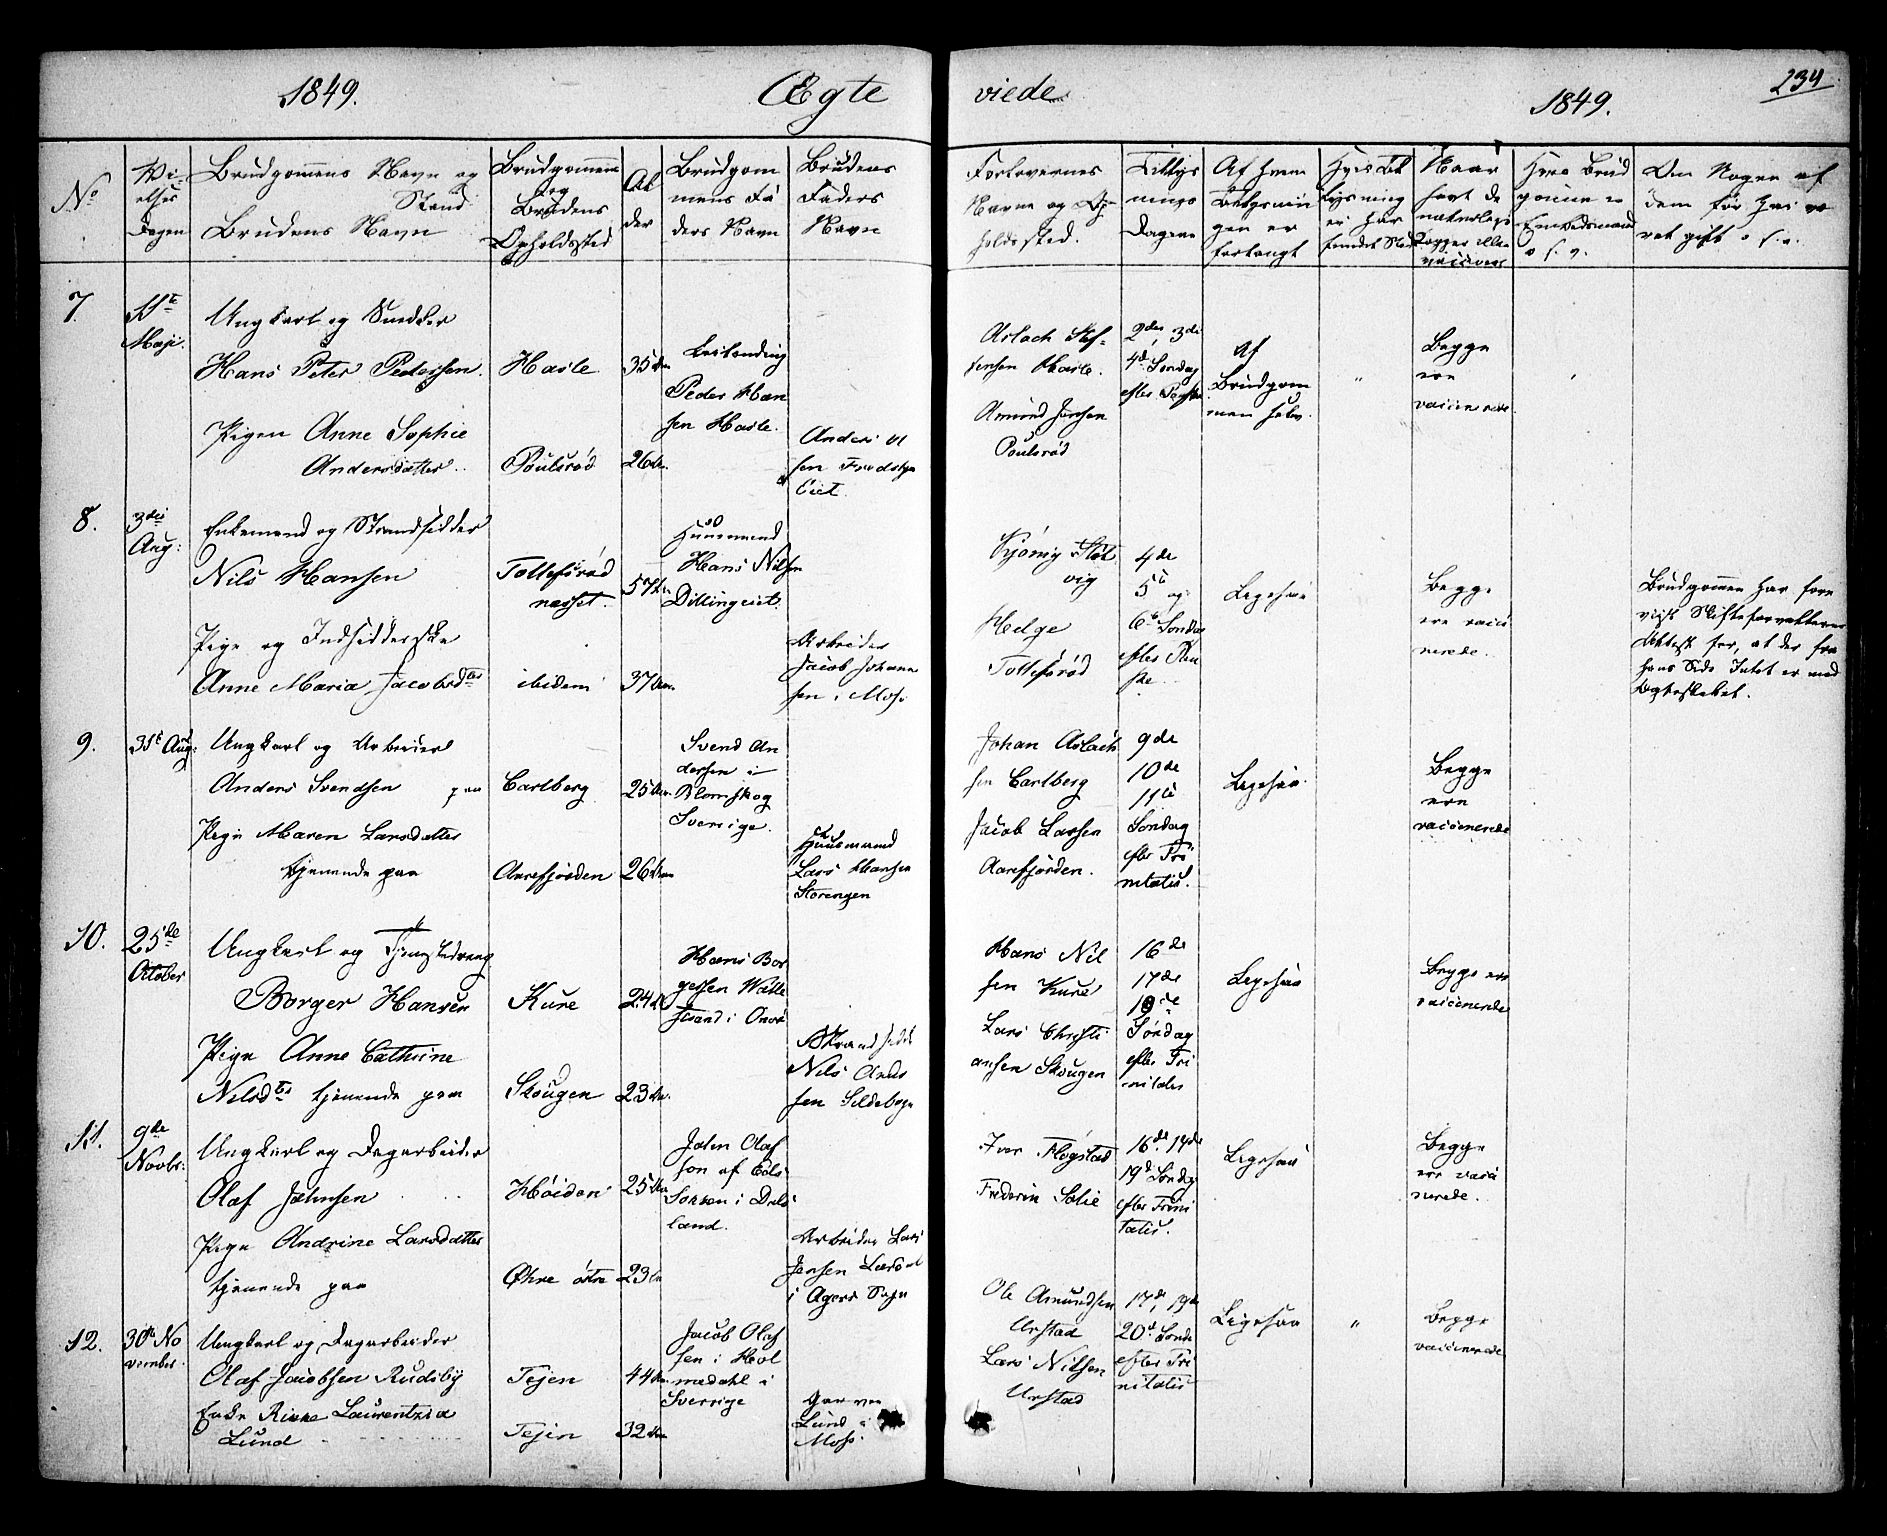 1849. Ægte viede 1849. 234
No
Vi-
elses
Dagen
Brudgommens Navn og
Stand
Brudens Navn
Brudgommens
og
Brudens
Opholdssted
Al
der
Brudgom
mens Fa
ders Navn
Brudens
Faders
Navn
Forlovernes
Navne og Op-
holdssted.
Tillys
nings
Dagene
Af hvem
Lysnin
gen er
forlangt
Naar
havt de
naturlige
Kopper eller
vaccinen
Hvis Brud
gommen er
Om Nogen af
dem før har væ
ret gift o. s. v.
7.
11te
Maji.
Ungkarl og Snedker
Hans Peter Pedersen.
Pigen Anne Sophie
Andersdatter.
Hasle
Poulsrød
35 Aar
26 Aar.
Peder Han
sen Hasle.
Anders Ol
sen
Eiet.
Aslach Stef-
fensen Hasle.
Amund Jensen
Poulsrød
2den, 3die
4de Søndag
efter Paaske
Af
Brudgom
men selv.
"
Begge
ere
vaccinerede.
8.
3die
Aug:
Enkemand og Strandsidder
Nils Hansen
Pige og Indsidderske
Anne Maria Jacobsdter
Tollefsrød
næsset.
ibidem
57 Aar
37 Aar.
Huusmand
Hans Nilsen
Dillingeiet.
Arbeider
Jacob Johann
sen i Moss
Helge
Tollefsrød
4de
5te og
6te Søndag
efter Paa
ske
Ligesaa
Begge
ere vacci
nerede.
Brudgommen har fore
viist Skifteforvalterens
Attest for, at der fra
hans Side Intet er mod
Ægteskabet.
9.
31te Aug:
Ungkarl og Arbeider
Anders Svendsen paa
Pige Maren Larsdatter
tjenende paa
Carlberg
Aarefjorden
25 Aar.
26 Aar
Svend An
dersen i
Blomskog
Sverrige.
Huusmand
Lars Hansen
Storengen
Johan Aslach
sen Carlberg
Jacob Larsen
Aarefjorden.
9de
10de
11te
Søndag
efter Tri
nitatis.
Ligesaa
Begge
ere
vaccinerede
10.
25de
October
Ungkarl og Tjenestedreng
Borger Hansen
Pige Anne Cathrine
Nilsdter tjenende paa
Kure
Skougen
24 Aar
23 Aar.
Hans Bor
gersen
i Onsø
Strandsidd
Nils Ands
sen Sildebogn
Hans Nil
sen Kure
Lars Christi
ansen Skougen
16de
17de
18de
Søndag
efter Tri
nitatis
Ligesaa
Begge ere
vaccinerede
11.
9de
Novbr:
Ungkarl og Dagarbeider
Olaf Jahnsen
Pige Andrine Larsdatter
tjenende paa
Høiden
Øhre østre
25 Aar
23 Aar
Jahn Olaf
son af
i Dals
land.
Arbeider Lars
Jensen
i Agers Sogn
Iver Flogstad
Frederik Solie
16de, 17de
19de Søndag
efter Trini
tatis.
Ligesaa
Begge
ere vacci
nerede.
12.
30te No
vember.
Ungkarl og Dagarbeider
Olaf Jacobsen Rudsby
Enke Rinne Laurentzia
Lund
Tejen
Tejen
44 Aar.
32 Aar
Jacob Olaf
sen i Hol
medahl i
Sverrige
Garver
Lund i
Moss.
Ole Amundsen
Urstad
Lars Nilsen
Urstad
17de, 19de
20de Sønda
efter Tri
nitatis
Ligesaa
"
Begge
vaccinerede